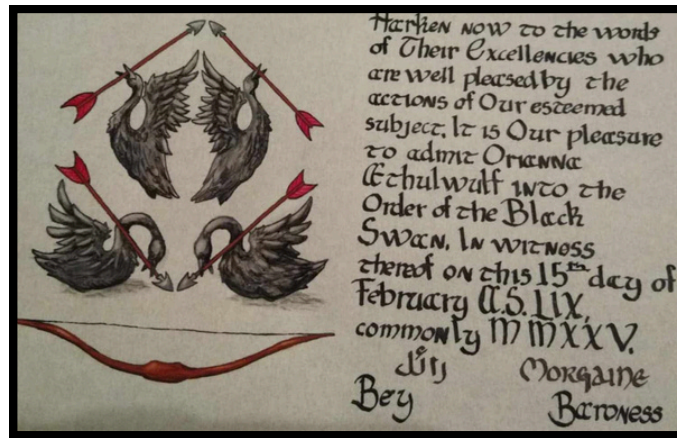 Harken now to the words
of Their Excellencies who
are well pleased by the
actions of Our esteemed
subject. It is Our pleasure
to admit Orianna
Æthulwulf into the
Order of the Black
Swan. In witness
thereof on this 15th day of
February A.S. LIX,
commonly MMXXV.
Morgaine
Bey Baroness